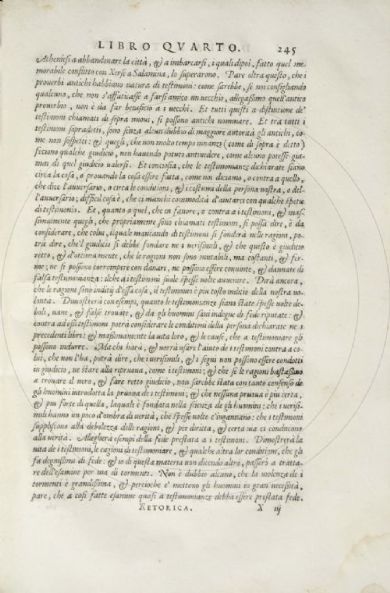 LIBRO QVARTO. 245
Atheniesi a abbandinare la città, & a imbarcarsi, i quali dipoi, fatto quel me-
morabile conflitto con Xerse a Salamina, lo superarono. Pare oltra questo, che i
proverbi antichi habbiano natura di testimoni: come sarebbe, se noi consigliando
qualcuno, che non s'affaticasse a farsi amico un vecchio, allegassimo quell'antico
proverbio, non è da far beneficio a i vecchi. Et tutti questi a distintione de'
testimoni chiamati di sopra nuovi, si possono antichi nominare. Et tra tutti i
testimoni sopradetti, sono senza alcun dubbio di maggiore autorità gli antichi, co-
me non sospetti: & quegli, che non molto tempo innanzi (come di sopra è detto)
feciono qualche giudicio, non havendo potuto antivedere, come alcuno potesse gia-
mai di quel giudicio valersi. Et conciosia, che le testimonianze dichiarate sieno
circa la cosa, o provando la cosa essere fatta, come noi diciamo, o contra a quello,
che dice l'avversario, o circa le conditioni, & i costumi della persona nostra, o del-
l'avversario; difficil cosa è, che ci manchi commodità d'aiutarci con qualche spetie
di testimonio. Et, quanto a quel, che in favore, o contra a i testimoni, & mas-
simamente quegli, che propriamente sono chiamati testimoni, si possa dire, è da
considerare, che colui, il quale mancando di testimoni si fonderà nelle ragioni, po-
trà dire, che'l giudicio si debbe fondare ne i verisimili, & che questo è giudicio
retto, & d'ottima mente, che le ragioni non sono mutabili, ma costanti, & fer-
me; ne si possono corrompere con danari, ne possono essere convinte, & dannate di
falsa testimonianza: il che a i testimoni suole spesse volte avvenire. Dirà ancora,
che le ragioni sono indicij d'essa cosa, il testimone è piu tosto indicio della nostra vo-
lontà. Dimosterrà con esempi, quanto le testimonianze siano state spesse volte de-
boli, vane, & false trovate, & da gli huomini savi indegne di fede riputate: &
contra ad essi testimoni potrà considerare le conditioni della persona dichiarate ne i
precedenti libri: & massimamente la vita loro, & le cause, che a testimoniare gli
possono indurre. Ma chi harà, & vorrà usare l'aiuto de i testimoni contra a co-
lui, che non l'ha, potrà dire, che i verisimili, & i segni non possono essere condotti
in giudicio, ne stare alla ripruova, come i testimoni; & che se le ragioni bastassino
a trovare il vero, & fare retto giudicio, non sarebbe stata con tanto consenso de
gli huomini introdotta la pruova de i testimoni; & che nessuna pruova è piu certa,
& piu forte di quella, laquale è fondata nella scienza de gli huomini; che i verisi-
mili hanno un poco d'ombra di verità, che spesse volte c'ingannano: che i testimoni
suppliscono alla debolezza delle ragioni, & per diritta, & certa via ci conducono
alla verità. Allegherà esempi della fede prestata a i testimoni. Dimosterrà la
vita de i testimoni, le cagioni da testimoniare, & qualche altra lor conditione, che gli
fa degnissimi di fede: & io di questa materia non dicendo altro, passerò a tratta-
re dell'esamine per via di tormento. Non è dubbio alcuno, che la violenza de i
tormenti è grandissima, & percioche e' mettono gli huomini in gran necessità,
pare, che a così fatte esamine quasi a testimonianze debba essere prestata fede.
RETORICA. X iij